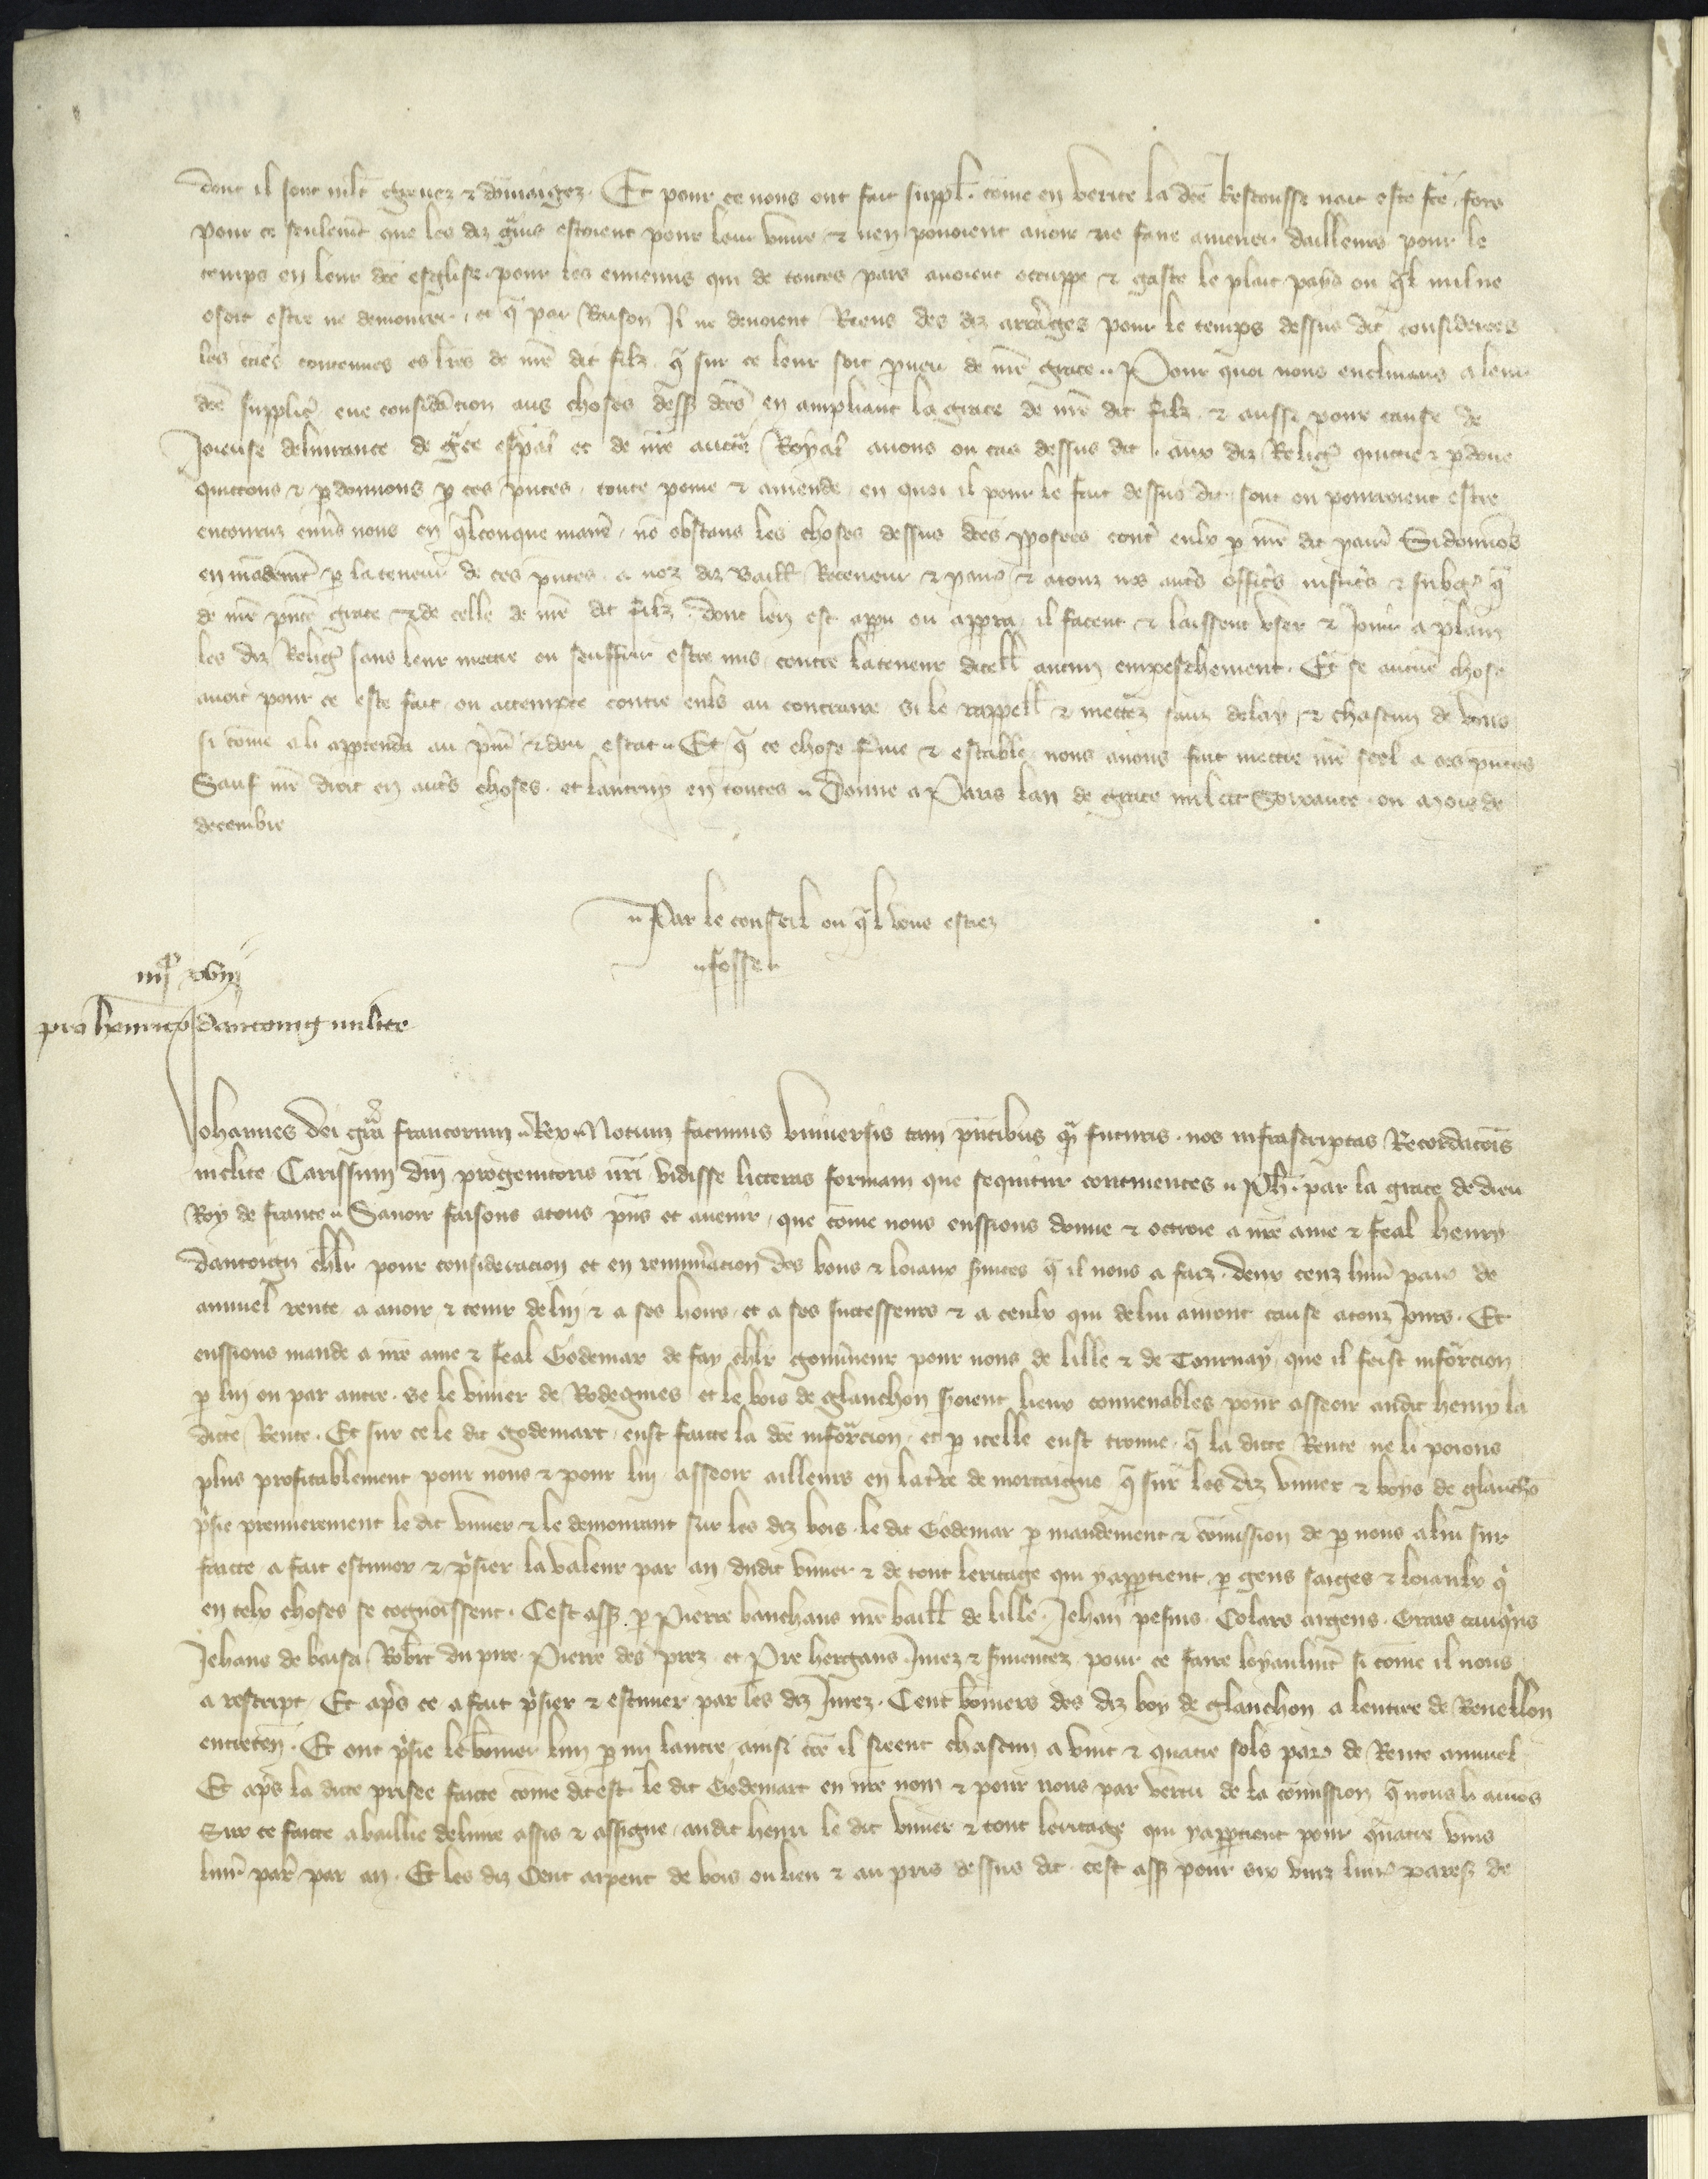 dont il sont mlt̃ grevez & dõmaigez. Et pour ce nous ont fait suppl. cõme en verite la dcẽ Rescousse nait este fcẽ fors
pour ce seulemt̃ que les diz gãins estoient pour leur vivre & nen povoient avoir ne faire amener dailleurs pour le
temps en leur dcẽ esglise pour les ennemis qui de toutes pars avoient occuppe & gaste le plait pays ou q̃l nul ne
osoit estre ne demourer, et q̃ par Raison Il ne devoient Riens des diz arrẽges pour le temps dessus dit considerees
les causes contenues es lr̃es de nr̃e dit filz q̃ sur ce leur soit p̃veu de nr̃e grace. Pour quoi nous enclinans a leur
dcẽ supplic̃ eue considãcion aus choses dess̃ dcẽs en ampliant la grace de nr̃e dit filz & aussi pour cause de
Joieuse delivrance de grãce esp̃al et de nr̃e aucte Royal avons ou cas dessus dit aux diz Relig̃ quitte & p̱donne
quittons & p̱donnons p̱ ces p̃ntes, toute peine & amende en quoi il pour le fait dessus dit sont ou pourroient estre
encouruz envs̃ nous en q̃lconque manie, nõ obstans les choses dessus dcẽs p̱posees contr̃ eulx p̱ nr̃e dit Si donnõs
en mãdemt̃ p̱ la teneur de ces p̃ntes a noz diz Baill Receveur & & a touz nos autr̃s offic̃s justic̃s & subg̃ q̃
de nr̃e p̃nte grace & de celle de nr̃e dit filz dont leur est apparu ou apparra il facent & laissent user & Joir̃ a plain
les diz Relig̃ sans leur mettre ou seuffrir estre mis contre la teneur dicell aucun empeschement. Et se aucune chose
avoit pour ce este fait ou attempte contre eulx au contraire si le rappell & mettez sanz delay, & chascun de vous
si cõme a li appartendra au p̃mi & deu estat. Et q̃ ce chose ferme & estable nous avons fait mettre nr̃e seel a ces p̃ntes
Sauf nr̃e droit en autr̃s choses et lautruy en toutes. Donne a Paris lan de grace mil ccc Soixante ou mois de
decembre
Par le conseil ou q̃l vous estiez
fosse
iiijc xviij
pro henrico dantoing milite
Johannes Dei gr̃a francorum Rex Notum facimus Universis tam p̃ntibus q̃m futuris nos infrascriptas Recordacõis
inclite Carissimi dñi progenitoris nr̃i vidisse litteras formam que sequitur continentes. Ph̃. par la grace de dieu
Roy de france. Savoir faisons a tous p̃ns et avenir, que cõme nous eussions donne & octroie a nr̃e ame & feal henry
dantoign chlr̃ pour consideracion et en remuñacion des bons & loiaux s̃vices q̃ il nous a faiz deux cenz livr̃ par̃ de
annuel rente a avoir & tenir de luy & a ses hoirs et a ses successeurs & a ceulx qui de lui auront cause a touz Jours. Et
eussions mande a nr̃e ame & feal Godemar de fay chlr̃ gouv̂neur pour nous de lille & de Tournay que il feist infor̃cion
p̱ lui ou par autre se le vivier de Rodegnies et le bois de glanchon seroient lieux convenables pour asseoir audit henry la
dicte Rente. Et sur ce le dit godemart eust faitte la dcẽ infor̃cion et p̱ icelle eust trouve q̃ la dicte Rente ne li poions
plus profitablement pour nous & pour luy asseoir ailleurs en la t̃re de mortaigne q̃ sur les diz vivier & boys de glanchõ
p̃sie premierement le dit vivier & le demourant sur les diz bois. le dit Godemar p̱ mandement & cõmission de p̱ nous a lui sur
faicte a fait estimer & p̃sier la valeur par an dudit vivier & de tout leritage qui y app̱tient p̱ gens saiges & loiaulx q̃
en telx choses se cognoissent. Cest ass̃. p̱ Pierre banchans nr̃e baill de lille. Jehan pesins. Colars argens. Grars
Jehans de Rob̃t du pire. Pierre des prez et P̃re hergans Jurez & s̃mentez pour ce faire loyaulmt̃ si cõme il nous
a rescript. Et apr̃s ce a fait p̃sier & estimer par les diz Jurez. Cent boniers des diz boy de glanchon a lentree de Revellon
entreten. Et ont p̃sie le bonier lun p̱ mi lautre ainsi cõe il sieent chascun a vint & quatre sols par̃ de Rente annuel
Et apr̃s la dicte prisee faicte cõme dit est le dit Godemart en nr̃e nom & pour nous par vertu de la cõmission q̃ nous li avios
sur ce faicte a baillie delivre assis & assigne audit henri le dit vivier & tout leritage qui y app̱tient pour quatre vins
livr̃ par̃ par an. Et les diz Cent arpent de bois ou lieu & au pris dessus dit cest ass̃ pour six vinz livr̃ pares̃ de